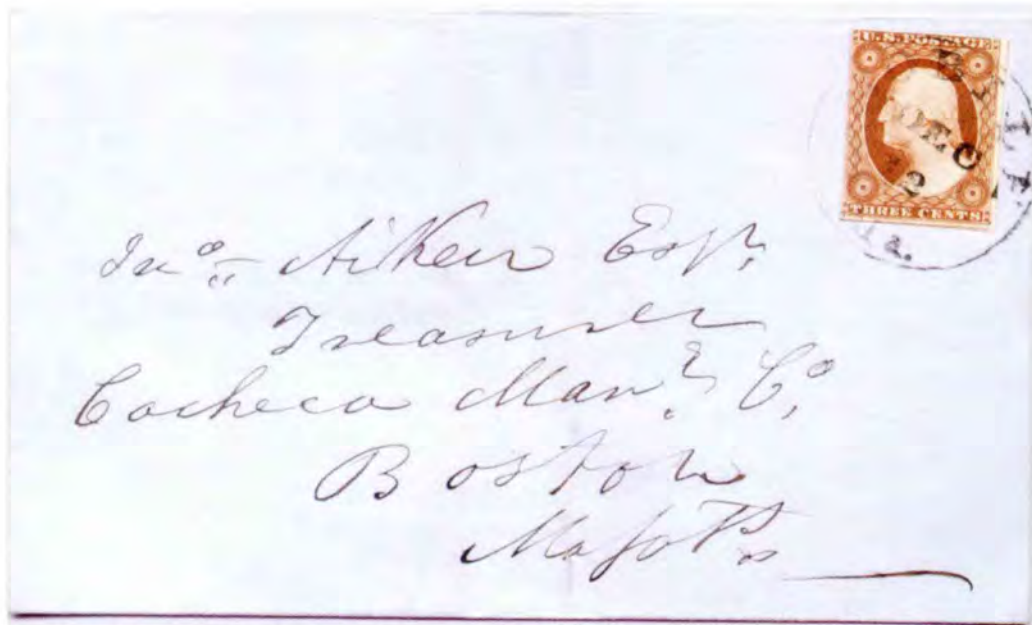 U.S. POSTAGE
DEC
2
THREE CENTS
a.
Jno. Aiken Esqr.
Treasurer
Cocheco Manr. Co.
Boston
Massts.